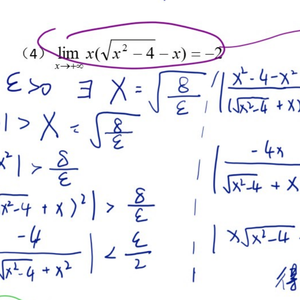 (4) lim x→+∞ x(√(x²-4) - x) = -2
ε>0 ∃ X = √(8/ε)
| > X = √(8/ε)
x²| > 8/ε
x²-4 + x)²| > 8/ε
-4 / √(x²-4) + x² | < ε/2
| x²-4-x² / (√(x²-4) + x
| -4x / √(x²-4) + x
| x√(x²-4)
得